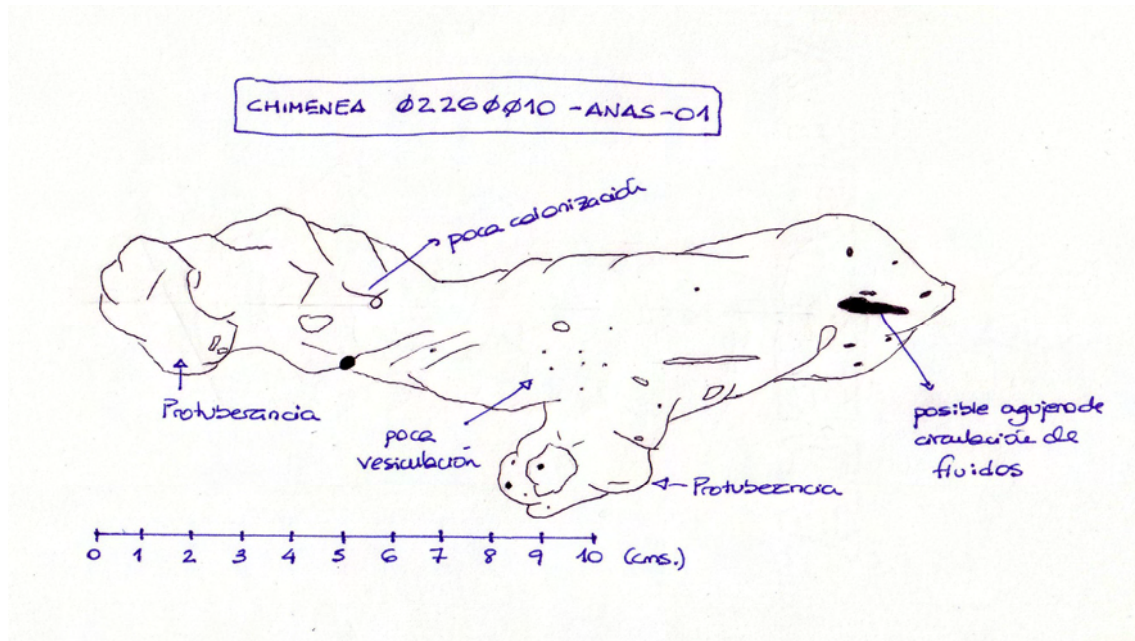 CHIMENEA Ø226ØØ10 -ANAS-01
poca colonización
Protuberancia
poca
vesiculación
posible agujero de
circulación de
fluidos
Protuberncia
0 1 2 3 4 5 6 7 8 9 10 (cms.)